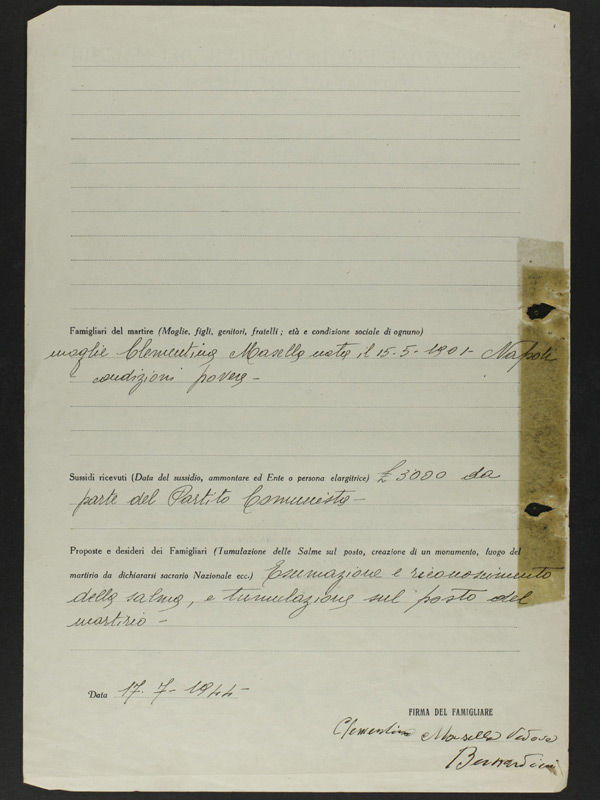 Famigliari del martire (Moglie, figli, genitori, fratelli ; età e condizione sociale di ognuno)
moglie Clementina Masella nata il 15-5-1901- Napoli
- condizioni povere -
Sussidi ricevuti (Data del sussidio, ammontare ed Ente o persona elargitrice) £ 3000 da
parte del Partito Comunista -
Proposte e desideri dei Famigliari (Tumulazione delle Salme sul posto, creazione di un monumento, luogo del
martirio da dichiararsi sacrario Nazionale ecc.) Esumazione e riconoscimento
della salma, e tumulazione sul posto del
martirio -
Data 17-7-1944-
FIRMA DEL FAMIGLIARE
Clementina Masella Vedova
Bernardini